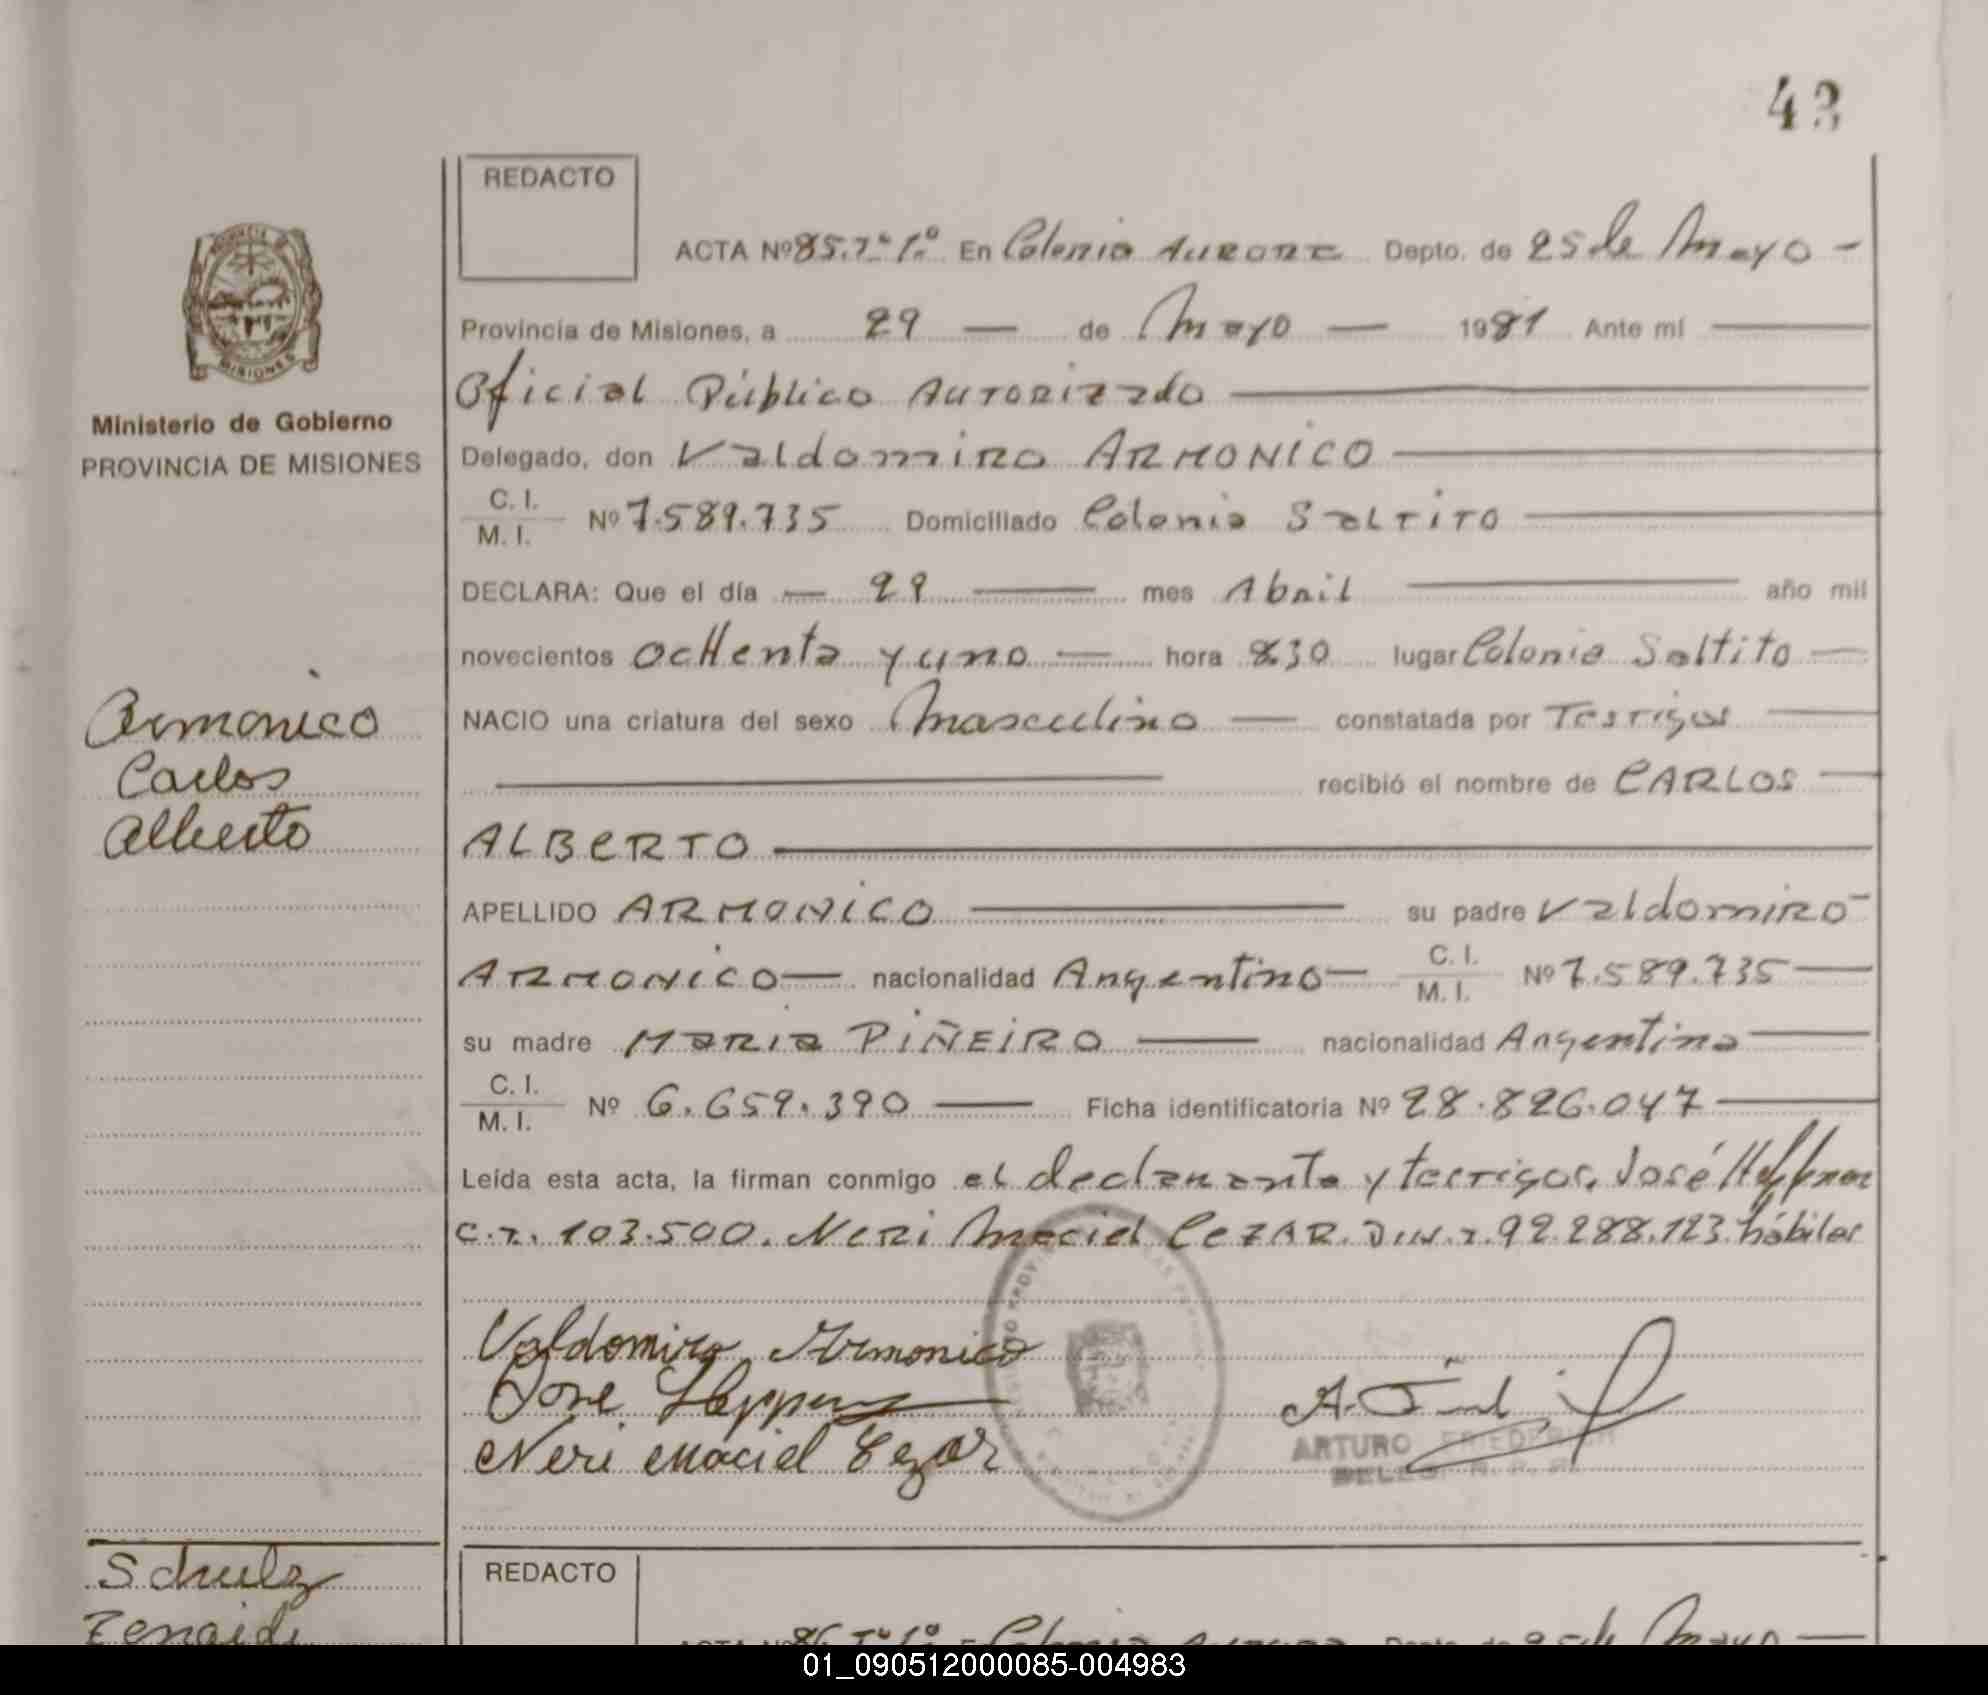 43
REDACTO
ACTA Nº 85.Tº 1º. En Colonia AURORA Depto. de 25 de Mayo -
Provincia de Misiones, a 29 — de Mayo — 1981. Ante mí —
Oficial Público Autorizado
Ministerio de Gobierno
PROVINCIA DE MISIONES
Delegado, don Valdomiro ARMONICO
C. I.
M. I.
Nº 7.589.735 Domiciliado Colonia SALTITO
DECLARA: Que el día — 29 — mes Abril — año mil
novecientos ochenta y uno — hora 830 lugar Colonia Saltito —
NACIO una criatura del sexo Masculino — constatada por Testigos —
recibió el nombre de CARLOS —
ALBERTO
Armonico
Carlos
Alberto
APELLIDO ARMONICO — su padre Valdomiro -
ARMONICO — nacionalidad Argentino — C. I. M. I. Nº 7.589.735 —
su madre MARIA PIÑEIRO — nacionalidad Argentina —
C. I.
M. I.
Nº 6.659.390 — Ficha identificatoria Nº 28.826.047 —
Leída esta acta, la firman conmigo el declarante y testigos, José Heffner
C.I. 103.500. Neri Maciel CEZAR. D.N.I. 92.288.123. hábiles
Valdomiro Armonico
Jose Heppner
Neri Maciel Cezar
ARTURO FRIEDERICH
Schulz
Zenaide
REDACTO
ACTA Nº 86 Tº 1º. En Colonia Aurora Depto. de 25 de Mayo —
01_090512000085-004983